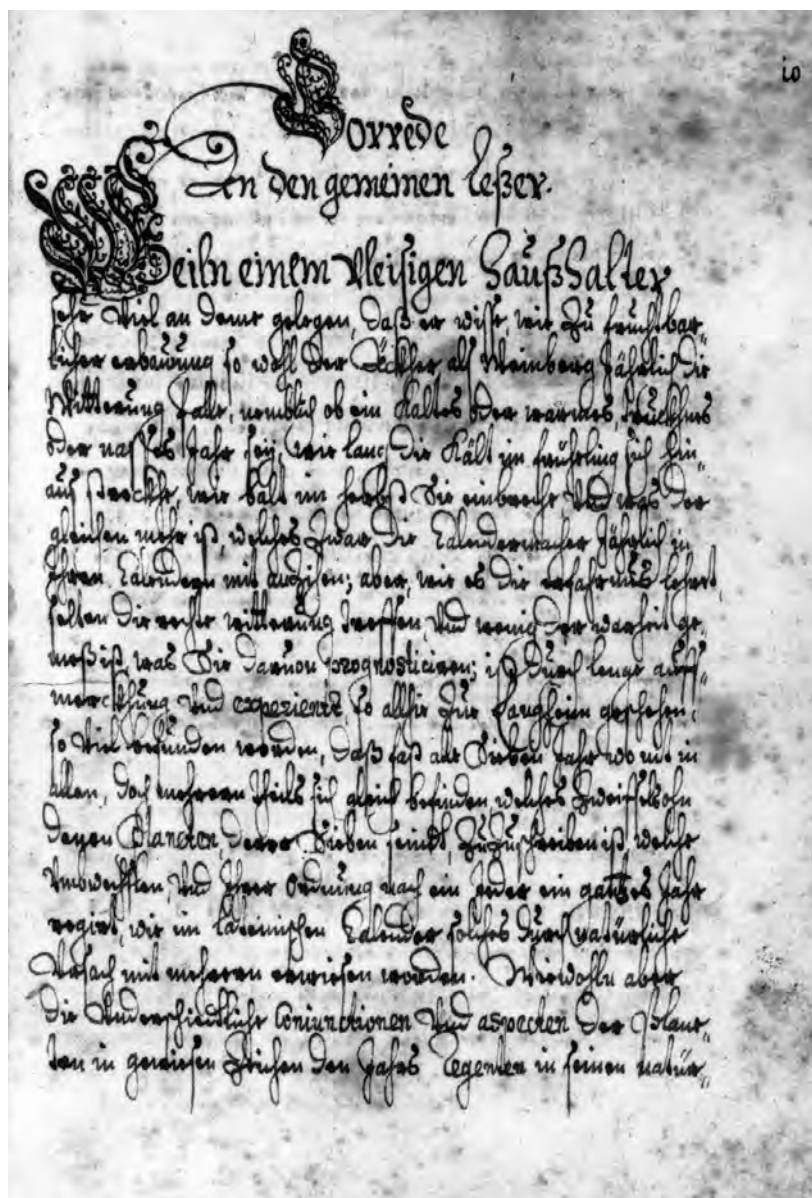 10
Vorrede
An den gemeinen Leßer.
Weiln einem Vleisigen Haußhalter
sehr Viel an deme gelegen, daß er wisse, wie zu fruchtbar„
licher erbauung so wohl der Äckher als Weinberg Jährlich die
Witterung falle, nemblich ob ein Kaltes oder warmes, truckhnes
oder nasses Jahr sey, wie lang die Kält im frühling sich hin„
auß streckhe, wie balt im herbst sie einbreche Und was der
gleichen mehr ist, welches zwar die Calendermacher Jährlich in
Ihren Calendern mit anzihen; aber, wie es die erfahrnus lehrt,
selten die rechte witterung treffen, Und wenig der warheit ge„
meß ist, was Sie daruon prognosticiren; ist durch lange auff„
merckhung Und experientz, so allhir zur Langheim geschehen,
so Viel befunden worden, daß fast alle Sieben Jahr wo nit in
allen, doch mehrern theils sich gleich befinden, welches zweiffelsohn
denen Planeten, derer Sieben seindt, zuzuschreiben ist, welche
Umbwechslen, Und Ihrer Ordnung nach ein Jeder ein gantzes Jahr
regirt, wie im Lateinischen Calender solches durch natürliche
Ursach mit mehrern erwiesen worden. Wiewohln aber
die Underschiedtliche Coniunctionen Und aspecten der Plane„
ten in gewiesen Zeichen den Jahrs Regenten in seinen natür„